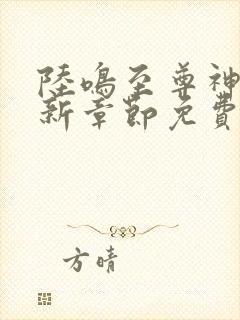 陸鳴至尊神
新章節免費
方晴